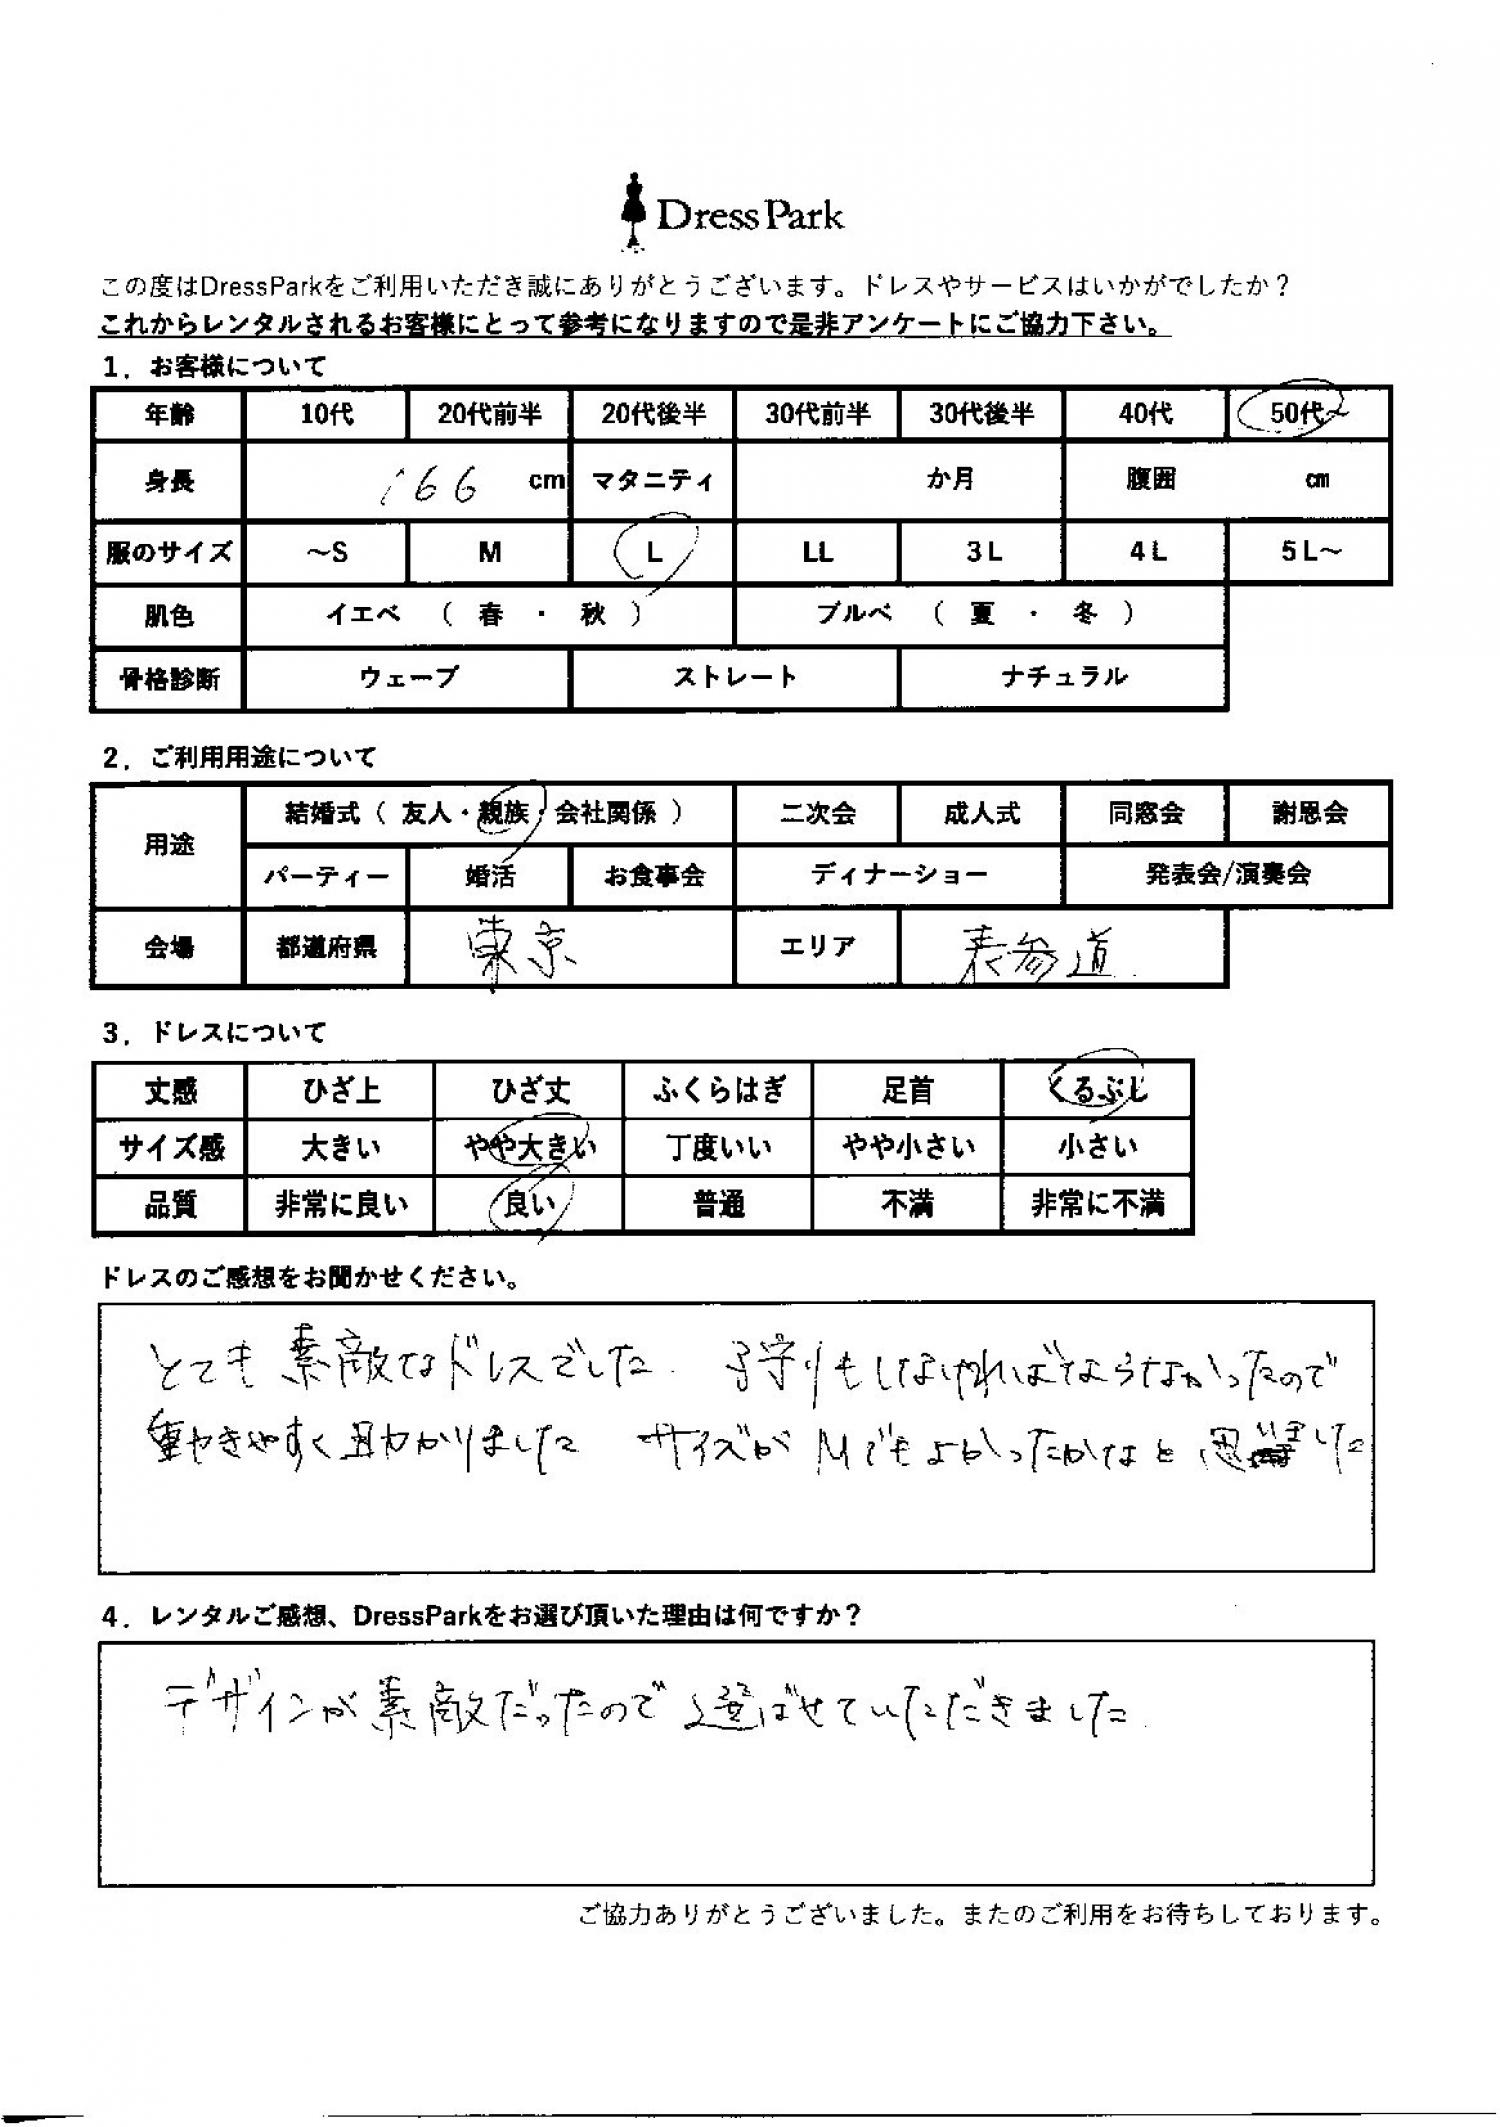 DressPark
この度はDressParkをご利用いただき誠にありがとうございます。ドレスやサービスはいかがでしたか？
これからレンタルされるお客様にとって参考になりますので是非アンケートにご協力下さい。
1．お客様について
年齢 10代 20代前半 20代後半 30代前半 30代後半 40代 50代~
身長 166 cm マタニティ か月 腹囲 cm
服のサイズ ～S M L LL 3L 4L 5L～
肌色 イエベ （ 春 ・ 秋 ） ブルベ （ 夏 ・ 冬 ）
骨格診断 ウェーブ ストレート ナチュラル
2．ご利用用途について
用途 結婚式（ 友人・親族・会社関係 ） 二次会 成人式 同窓会 謝恩会
パーティー 婚活 お食事会 ディナーショー 発表会/演奏会
会場 都道府県 東京 エリア 表参道
3．ドレスについて
丈感 ひざ上 ひざ丈 ふくらはぎ 足首 くるぶし
サイズ感 大きい やや大きい 丁度いい やや小さい 小さい
品質 非常に良い 良い 普通 不満 非常に不満
ドレスのご感想をお聞かせください。
とても素敵なドレスでした. 子守りもしなければならなかったので
動きやすく助かりました サイズが Mでもよかったかなと思いました
4．レンタルご感想、DressParkをお選び頂いた理由は何ですか？
デザインが素敵だったので選ばせていただきました
ご協力ありがとうございました。またのご利用をお待ちしております。